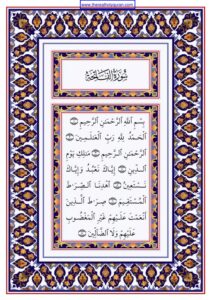 www.thenoblequran.com
سُورَةُ الْفَاتِحَةِ
بِسْمِ اللَّهِ الرَّحْمَٰنِ الرَّحِيمِ ۝
الْحَمْدُ لِلَّهِ رَبِّ الْعَالَمِينَ ۝
الرَّحْمَٰنِ الرَّحِيمِ ۝ مَالِكِ يَوْمِ
الدِّينِ ۝ إِيَّاكَ نَعْبُدُ وَإِيَّاكَ
نَسْتَعِينُ ۝ اهْدِنَا الصِّرَاطَ
الْمُسْتَقِيمَ ۝ صِرَاطَ الَّذِينَ
أَنْعَمْتَ عَلَيْهِمْ غَيْرِ الْمَغْضُوبِ
عَلَيْهِمْ وَلَا الضَّالِّينَ ۝